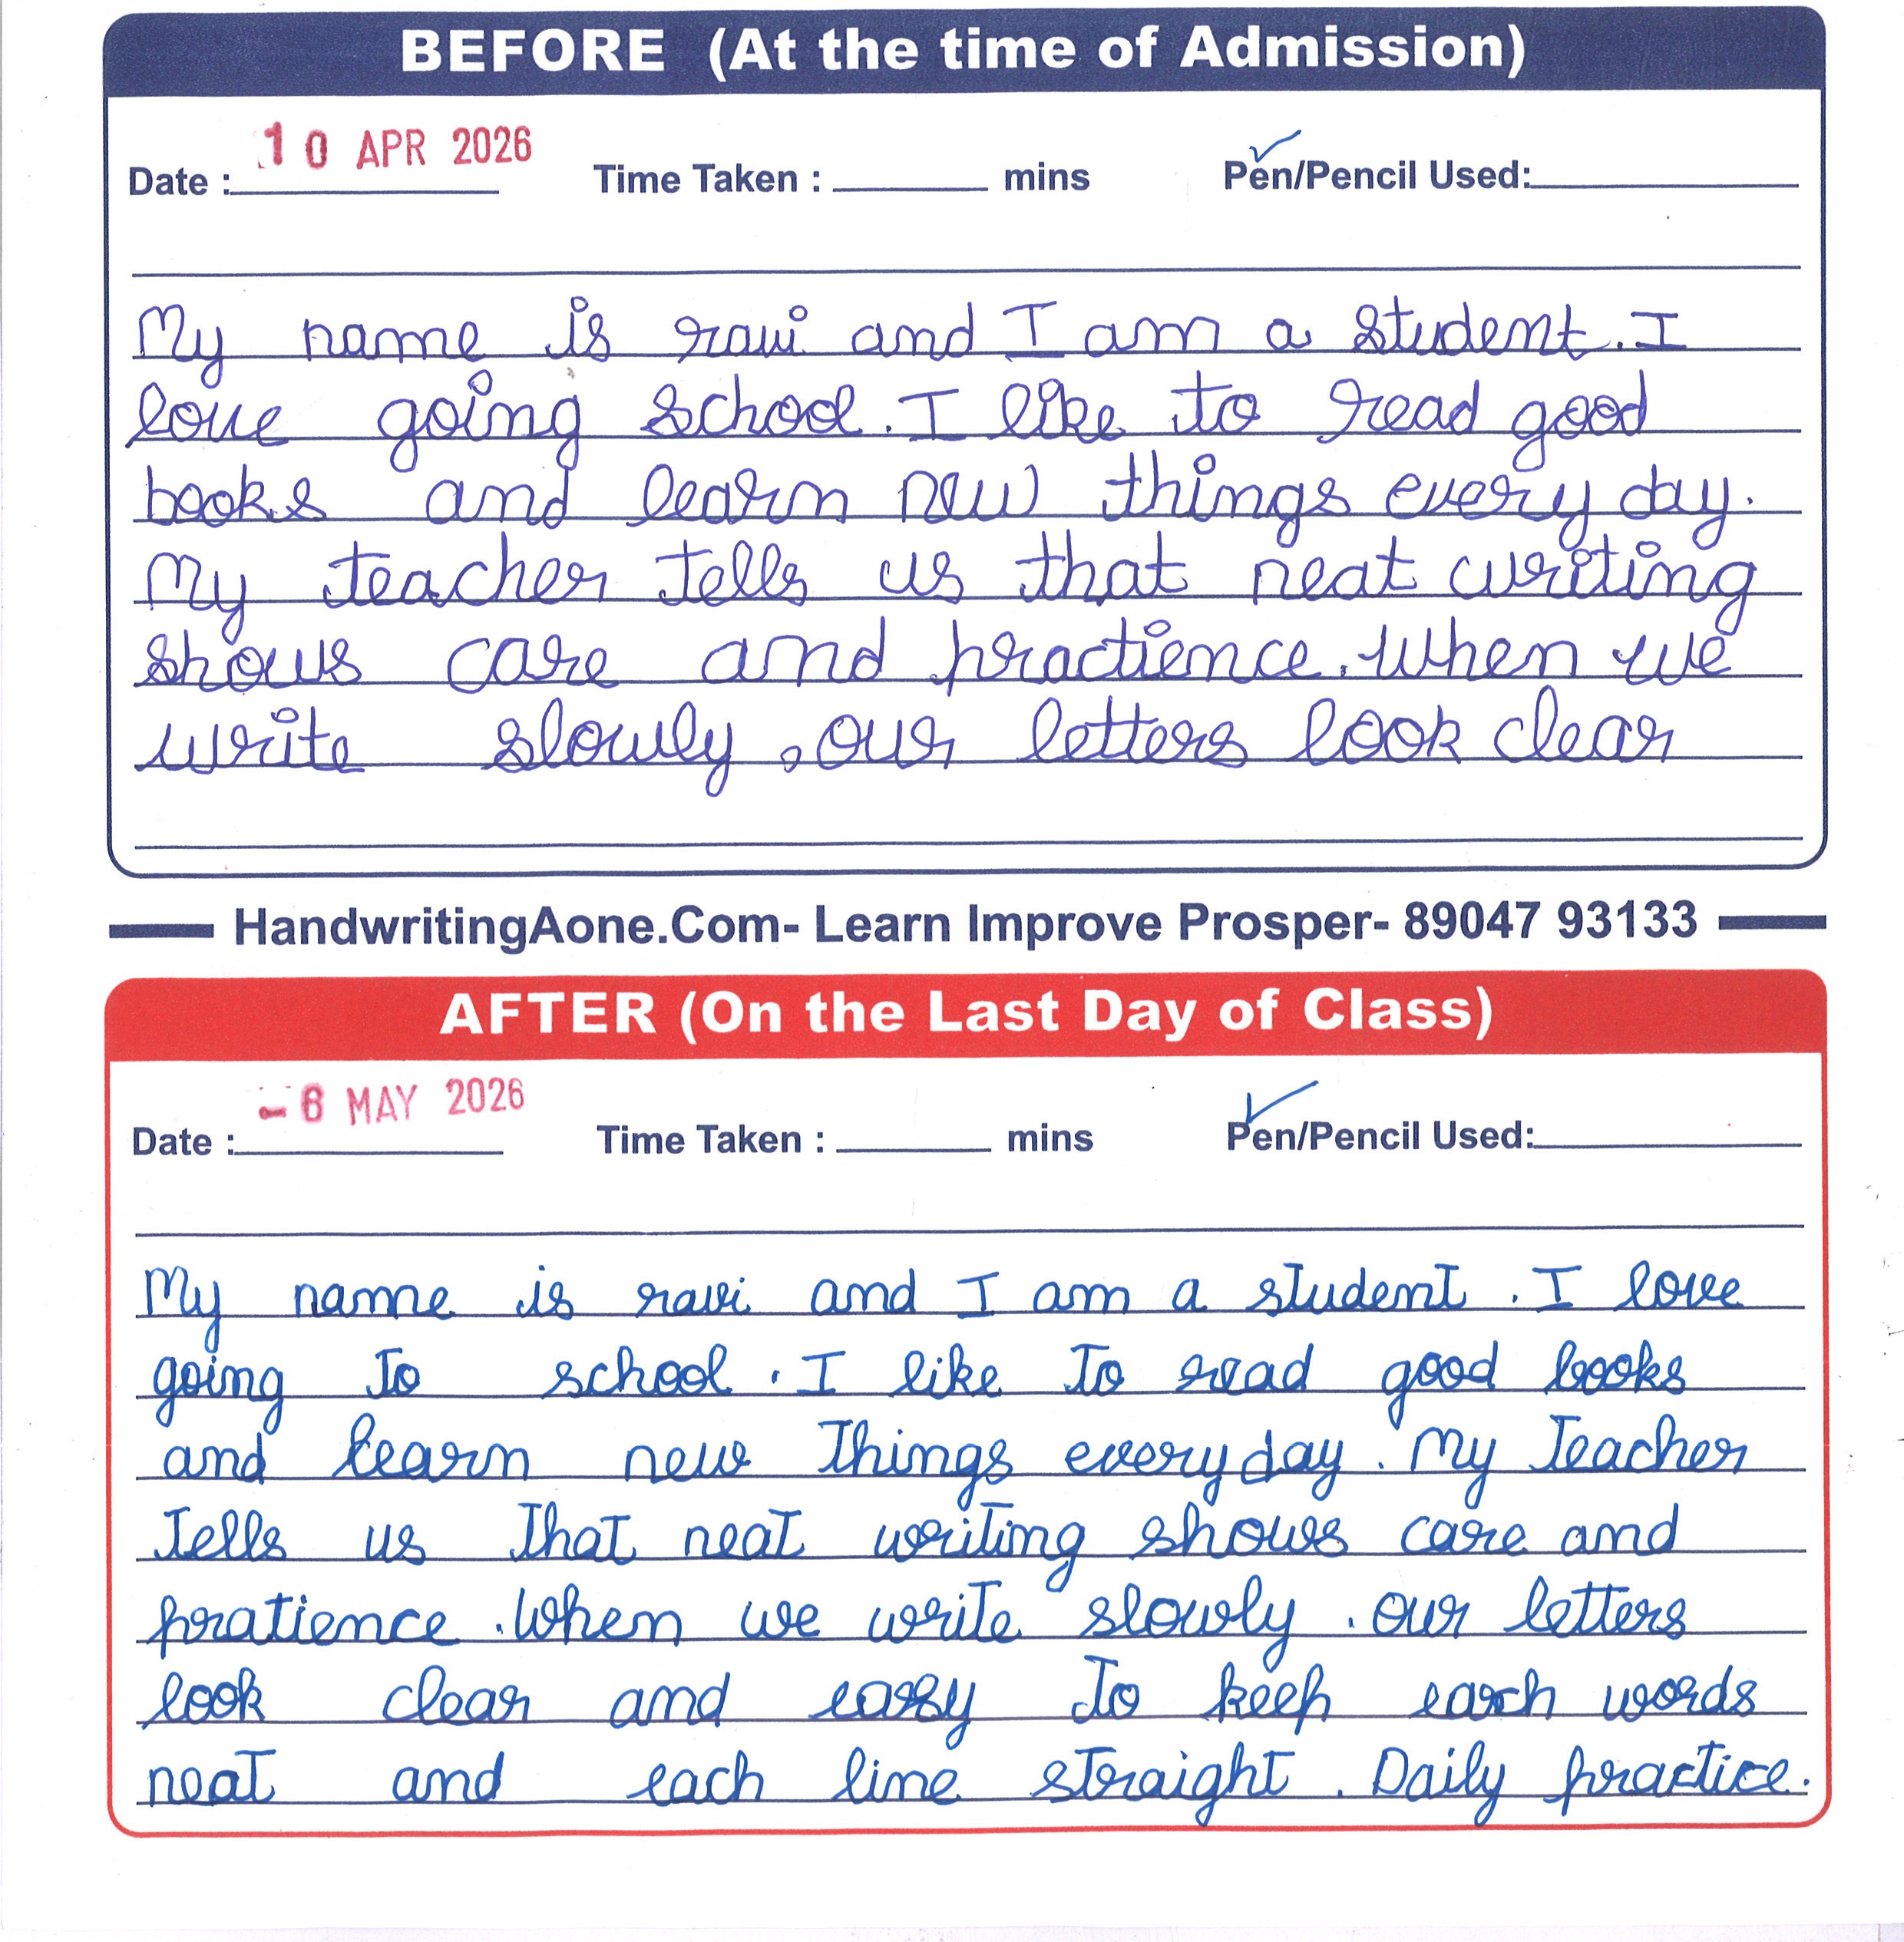 BEFORE (At the time of Admission)
Date : 10 APR 2026 Time Taken : mins Pen/Pencil Used:
My name is ravi and I am a student. I
love going school. I like to read good
books and learn new things every day.
My teacher tells us that neat writing
shows care and practience. when we
write slowly , our letters look clear
HandwritingAone.Com- Learn Improve Prosper- 89047 93133
AFTER (On the Last Day of Class)
Date : - 6 MAY 2026 Time Taken : mins Pen/Pencil Used:
My name is ravi and I am a student . I love
going to school . I like to read good books
and learn new things everyday . My teacher
tells us that neat writing shows care and
pratience . When we write slowly . our letters
look clear and easy to keep each words
neat and each line straight . Daily practice.